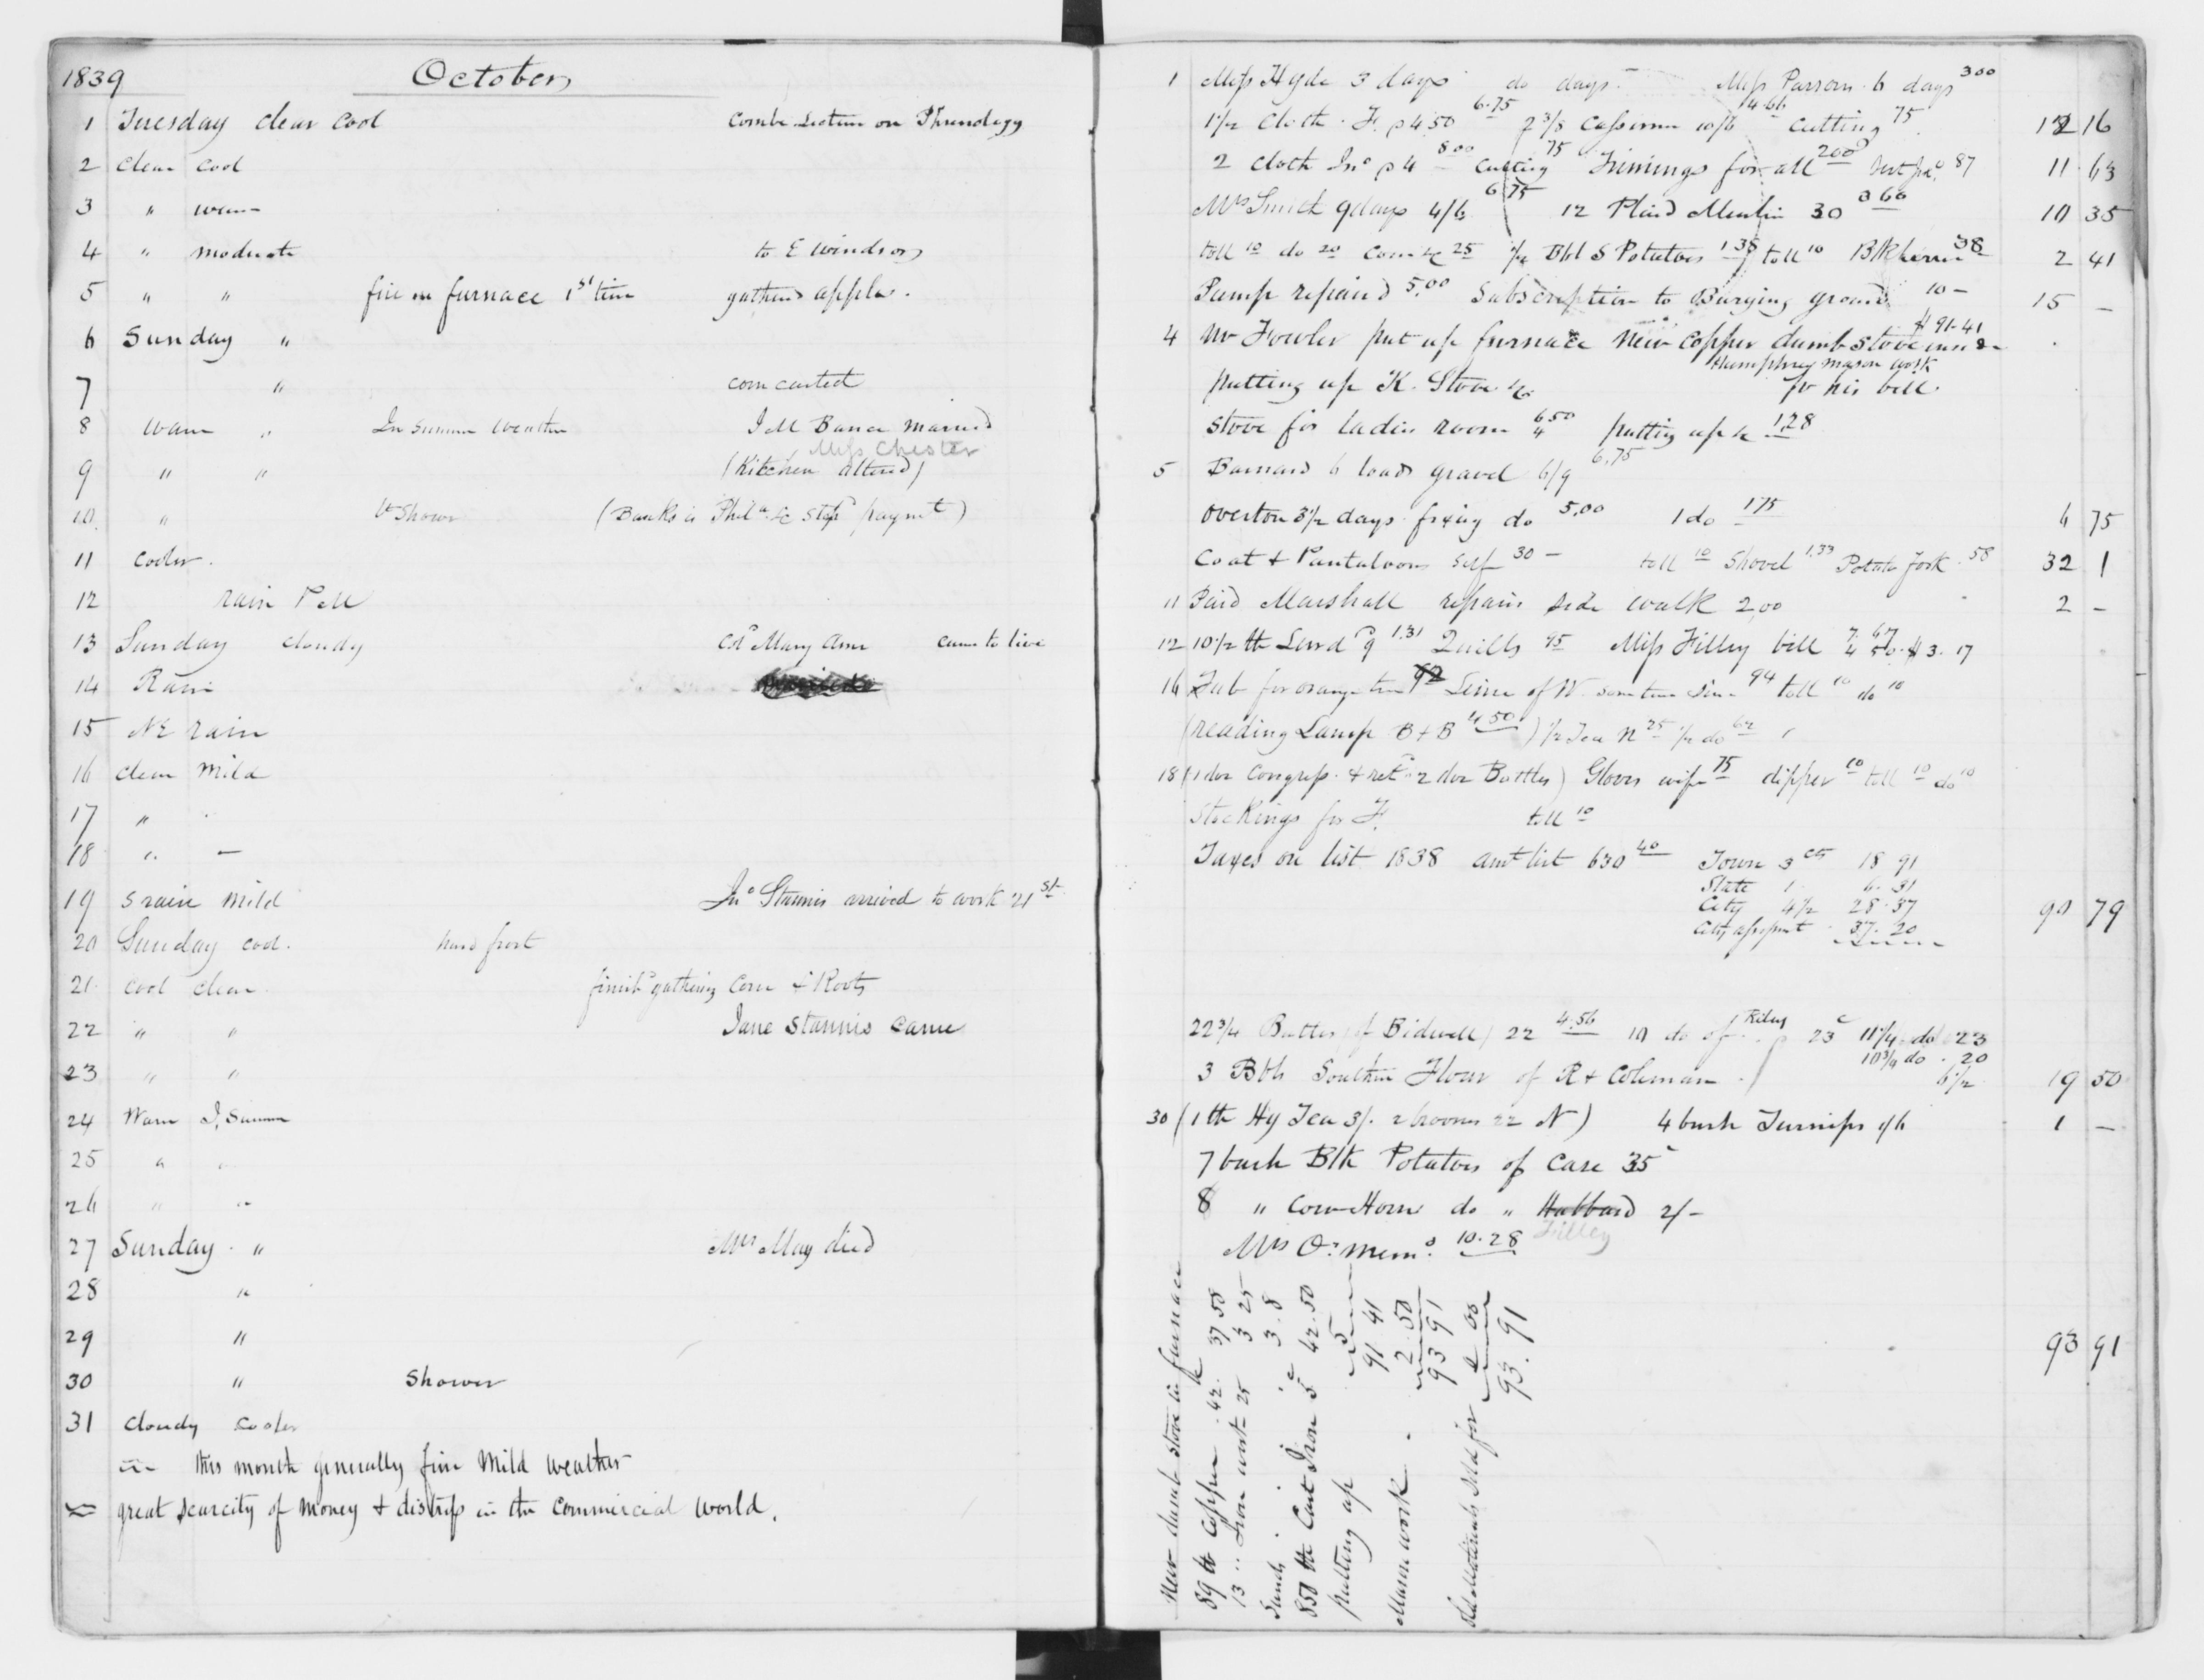 1839 October
1 Tuesday clear cool Combe Lecture on Phrenology
2 Clear cool
3 " warm
4 " moderate to E Windsor
5 " " fire in furnace 1st time gathered apples.
6 Sunday "
7 " corn carted
8 warm " In summer weather J M Bunce married
Miss Chester
9 " " (Kitchen altered)
10 " Lt Shower (Banks in Phila &c stopd paymet)
11 cooler.
12 rain P M
13 Sunday cloudy Cold Mary Ann came to live
14 Rain
15 NE rain
16 clear mild
17 "
18 " -
19 S rain mild Jno Stannis arrived to work 21st
20 Sunday cool. hard frost
21 cool clear finishd gathering Corn & Roots
22 " " Jane Stannis came
23 " "
24 Warm I, Summer
25 " "
26 " "
27 Sunday " Mrs May died
28 "
29 "
30 " Shower
31 cloudy cooler
this month generally fine mild weather
great scarcity of money & distress in the commercial world.
1 Miss Hyde 3 days do days Miss Parsons 6 days 300
1 1/2 Cloth F. @ 4.50 6.75 2 3/8 Cassimer 10/6 4.66 Cutting 75 12 16
2 Cloth Jno @ 4 8.00 Cutting 75 Trimings for all 200 87 11.63
Mrs Smith 9 days 4/6 6.75 12 Plaid Muslin 30 3 60 10 35
toll 10 do 20 25 1/2 Bbl S Potatoes 1 38 toll 10 38 2 41
Pump repaird 5.00 Subscription to Burying ground 10- 15 -
4 Mr Fowler put up furnace New Copper dumb stove $ 91.41
Humphrey mason work
putting up K. Stove &c pr his bill.
stove for ladies room 6 50 putting up &c 1.28
5 Barnard 6 loads gravel 6/9 6.75
Overton 3 1/2 days fixing do 5.00 1 do 1 75 6 75
Coat & Pantaloons self 30 - toll 10 Shovel 1.33 Potato fork 58 32 1
11 Paid Marshall repairs side walk 2,00 2 -
12 10 1/2 lb Lard 9 1.31 Quills 45 Miss Filley bill $3.17
16 Tub for orange tree 92 Lime of W. some time since 94 toll 10 do 10
(reading Lamp B & B 4 50) 1/2 Tea N 25 1/2 do 62
18 (1 doz Congress & retd 2 doz Bottles) Gloves wife 75 dipper 10 toll 10 do 10
Stockings for F. toll 10
Taxes on list 1838 amt list 630 40 Town 3 cts 18 91
State 1 6.31
City 4 1/2 28.37
City assesmt 37.20 90 79
22 3/4 Butter of Bidwell 22 4.56 10 do of Riley 23 c 11 1/4 do 23
10 3/4 do 20
3 Bbls Southern Flour of R & Coleman 6 1/2 19 50
30 (1 lb Hy Tea 3/. 2 brooms 22 N) 4 bush Turnips 1/6 1 -
7 bush Blk Potatoes of Case 35 c
8 " Cow Horn do " Hubbard 2/-
Filley
Mrs O's memo. 10.28
93 91
New dumb stove in furnace
89 lb Copper .42 37 58
13 " Iron work 25 3 25
Sund. 3.8
850 lb Cast Iron 5 c 42.50
putting up 5
91 41
Mason work 2.50
93 91
Old Materials sold for
93.91